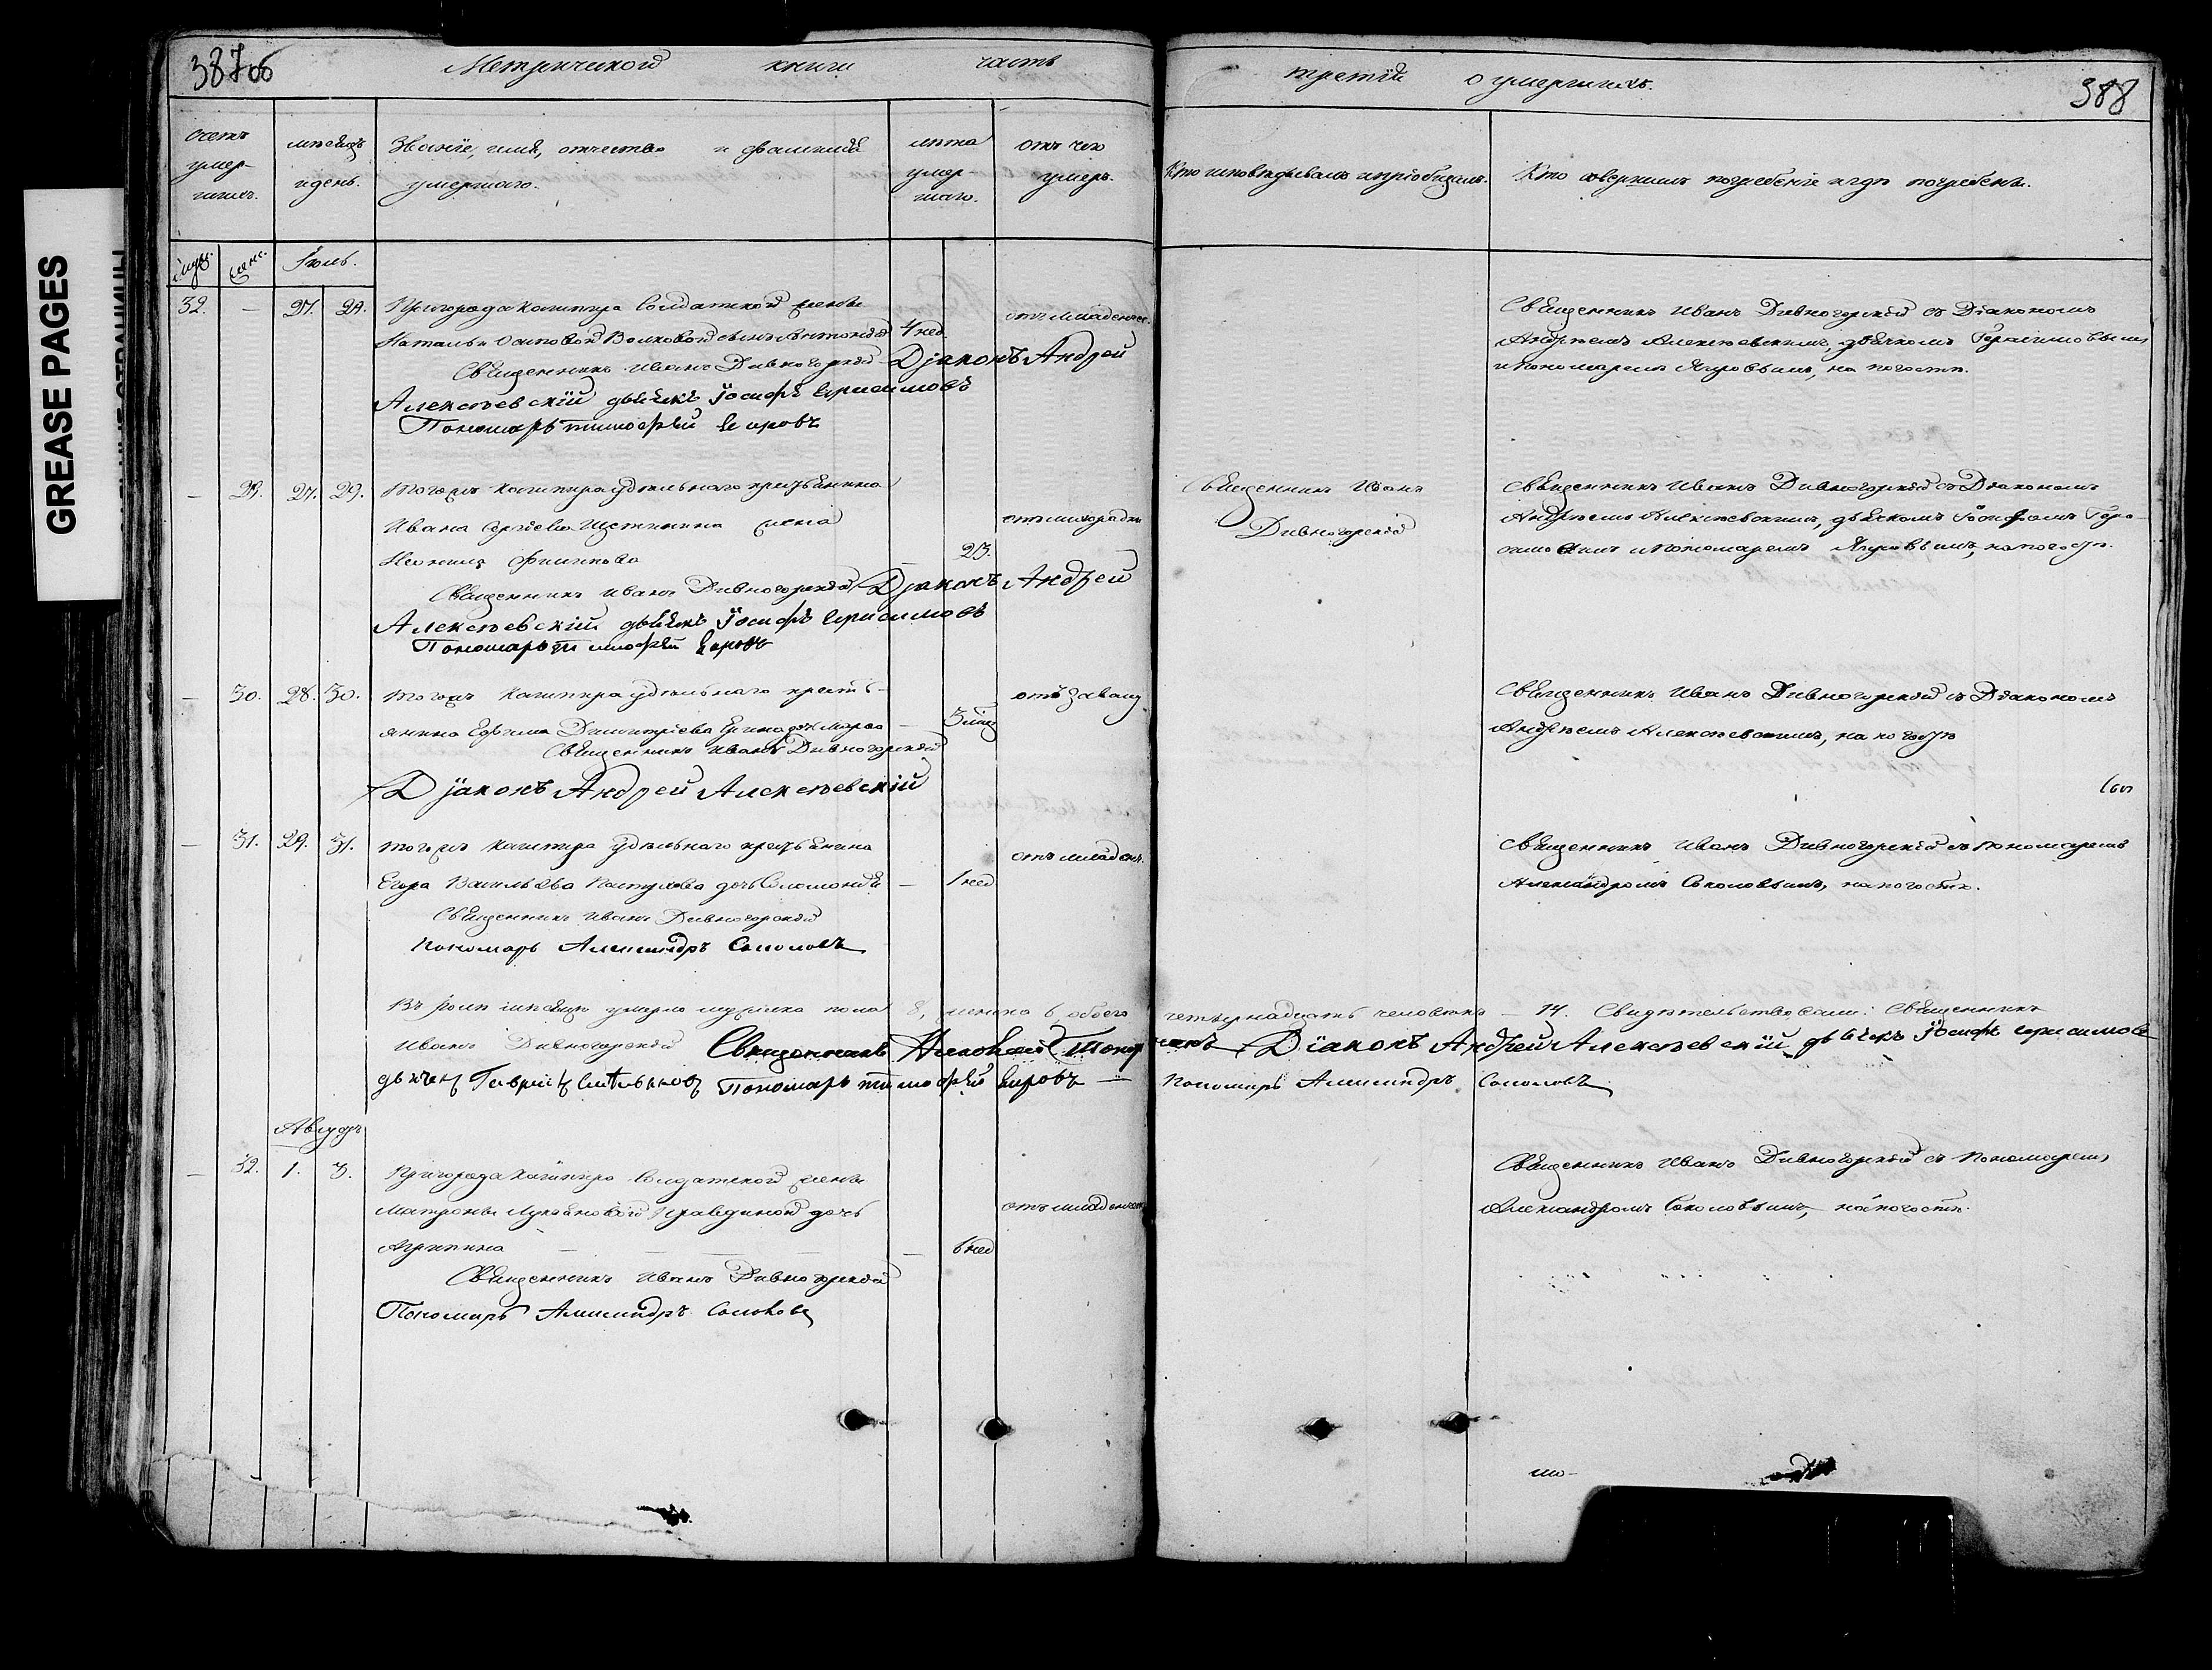 GREASE PAGES
387 об
Метрической книги часть
третїй о умершихъ.
388
счетъ умер-шихъ.
мѣсяцъ и день.
Званїе, имя, отчество и фамилїя умершаго.
лѣта умер-шаго.
отъ чего умеръ.
Кто исповѣдывалъ и прїобщалъ.
Кто совершилъ погребенїе и гдѣ погребенъ.
муж. женс. Іюль.
32. — 27. 29. Пригорода Кашпира Солдатской жены
Натальи Осиповой Волковой сынъ
4 нед.
отъ младенчес.
Священникъ Иванъ Дивногорскїй Дїаконъ Андрей
Алексѣевскїй дьячекъ Іосифъ Ерасимовъ
Пономарь тимофѣй Егоровъ
Священникъ Иванъ Дивногорскїй съ Дїакономъ
Андреемъ Алексѣевскимъ, дьячкомъ Герасимовымъ
и пономаремъ на погостѣ.
— 29. 27. 29. Тогожъ Кашпира удѣльнаго крестьянина
Ивана Сергѣева Щетинина жена
23.
отъ лихорадки
Священникъ Иванъ Дивногорскїй Дїаконъ Андрей
Алексѣевскїй дьячекъ Іосифъ Ерасимовъ
Пономарь тимофѣй Егоровъ
Священникъ Иванъ
Дивногорскїй
Священникъ Иванъ Дивногорскїй съ Дїакономъ
Андреемъ Алексѣевскимъ, дьячкомъ Іосифомъ Гера-
симовымъ и пономаремъ на погостѣ.
— 30. 28. 30. Тогожъ Кашпира удѣльнаго кресть-
янина Ефима Димитрїева дочь Марва
— 3 мѣс
отъ завалу
Священникъ Иванъ Дивногорскїй
Дїаконъ Андрей Алексѣевскїй
Священникъ Иванъ Дивногорскїй съ Дїакономъ
Андреемъ Алексѣевскимъ, на погостѣ
— 31. 29. 31. Тогожъ Кашпира Удѣльнаго крестьянина
Егора Васильева Пастухова дочь Соломонїя
— 1 нед
отъ младен.
Священникъ Иванъ Дивногорскїй
Пономарь Александръ Соколовъ
Священникъ Иванъ Дивногорскїй съ пономаремъ
Александромъ Соколовымъ, на погостѣ.
Въ Іюлѣ мѣсяцѣ умерло мужеска пола 8, женска 6, обоего четырнадцать человѣкъ — 14. Свидѣтельствовали: Священникъ
Иванъ Дивногорскїй Священникъ Дїаконъ Андрей Алексѣевскїй дьячекъ Іосифъ Ерасимовъ
дьячекъ Гаврїилъ Пономарь тимофѣй Егоровъ — Пономарь Александръ Соколовъ
Августъ
— 32. 1. 3. Пригорода Кашпира Солдатской жены
Матроны Лукьяновой дочь
Агрипина — — — — 6 нед
отъ младенчес
Священникъ Иванъ Дивногорскїй
Пономарь Александръ Соколовъ
Священникъ Иванъ Дивногорскїй съ Пономаремъ
Александромъ Соколовымъ, на погостѣ.